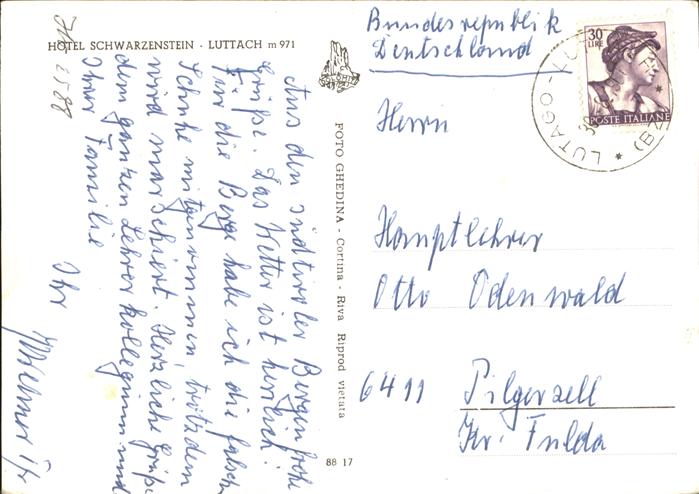 HOTEL SCHWARZENSTEIN - LUTTACH m 971
Aus den südtiroler Bergen frohe
Grüße. Das Wetter ist herrlich!
Für die Berge habe ich die falschen
Schuhe mitgenommen trotzdem
wird marschiert. Herzliche Grüße
dem ganzen Lehrerkollegium und
Ihrer Familie
Ihr
FOTO GHEDINA - Cortina - Riva Riprod vietata
88 17
Bundesrepublik
Deutschland
30
LIRE
POSTE ITALIANE
LUTAGO
(BZ)
Herrn
Hauptlehrer
Otto Odenwald
6411 Pilgerzell
Kr. Fulda